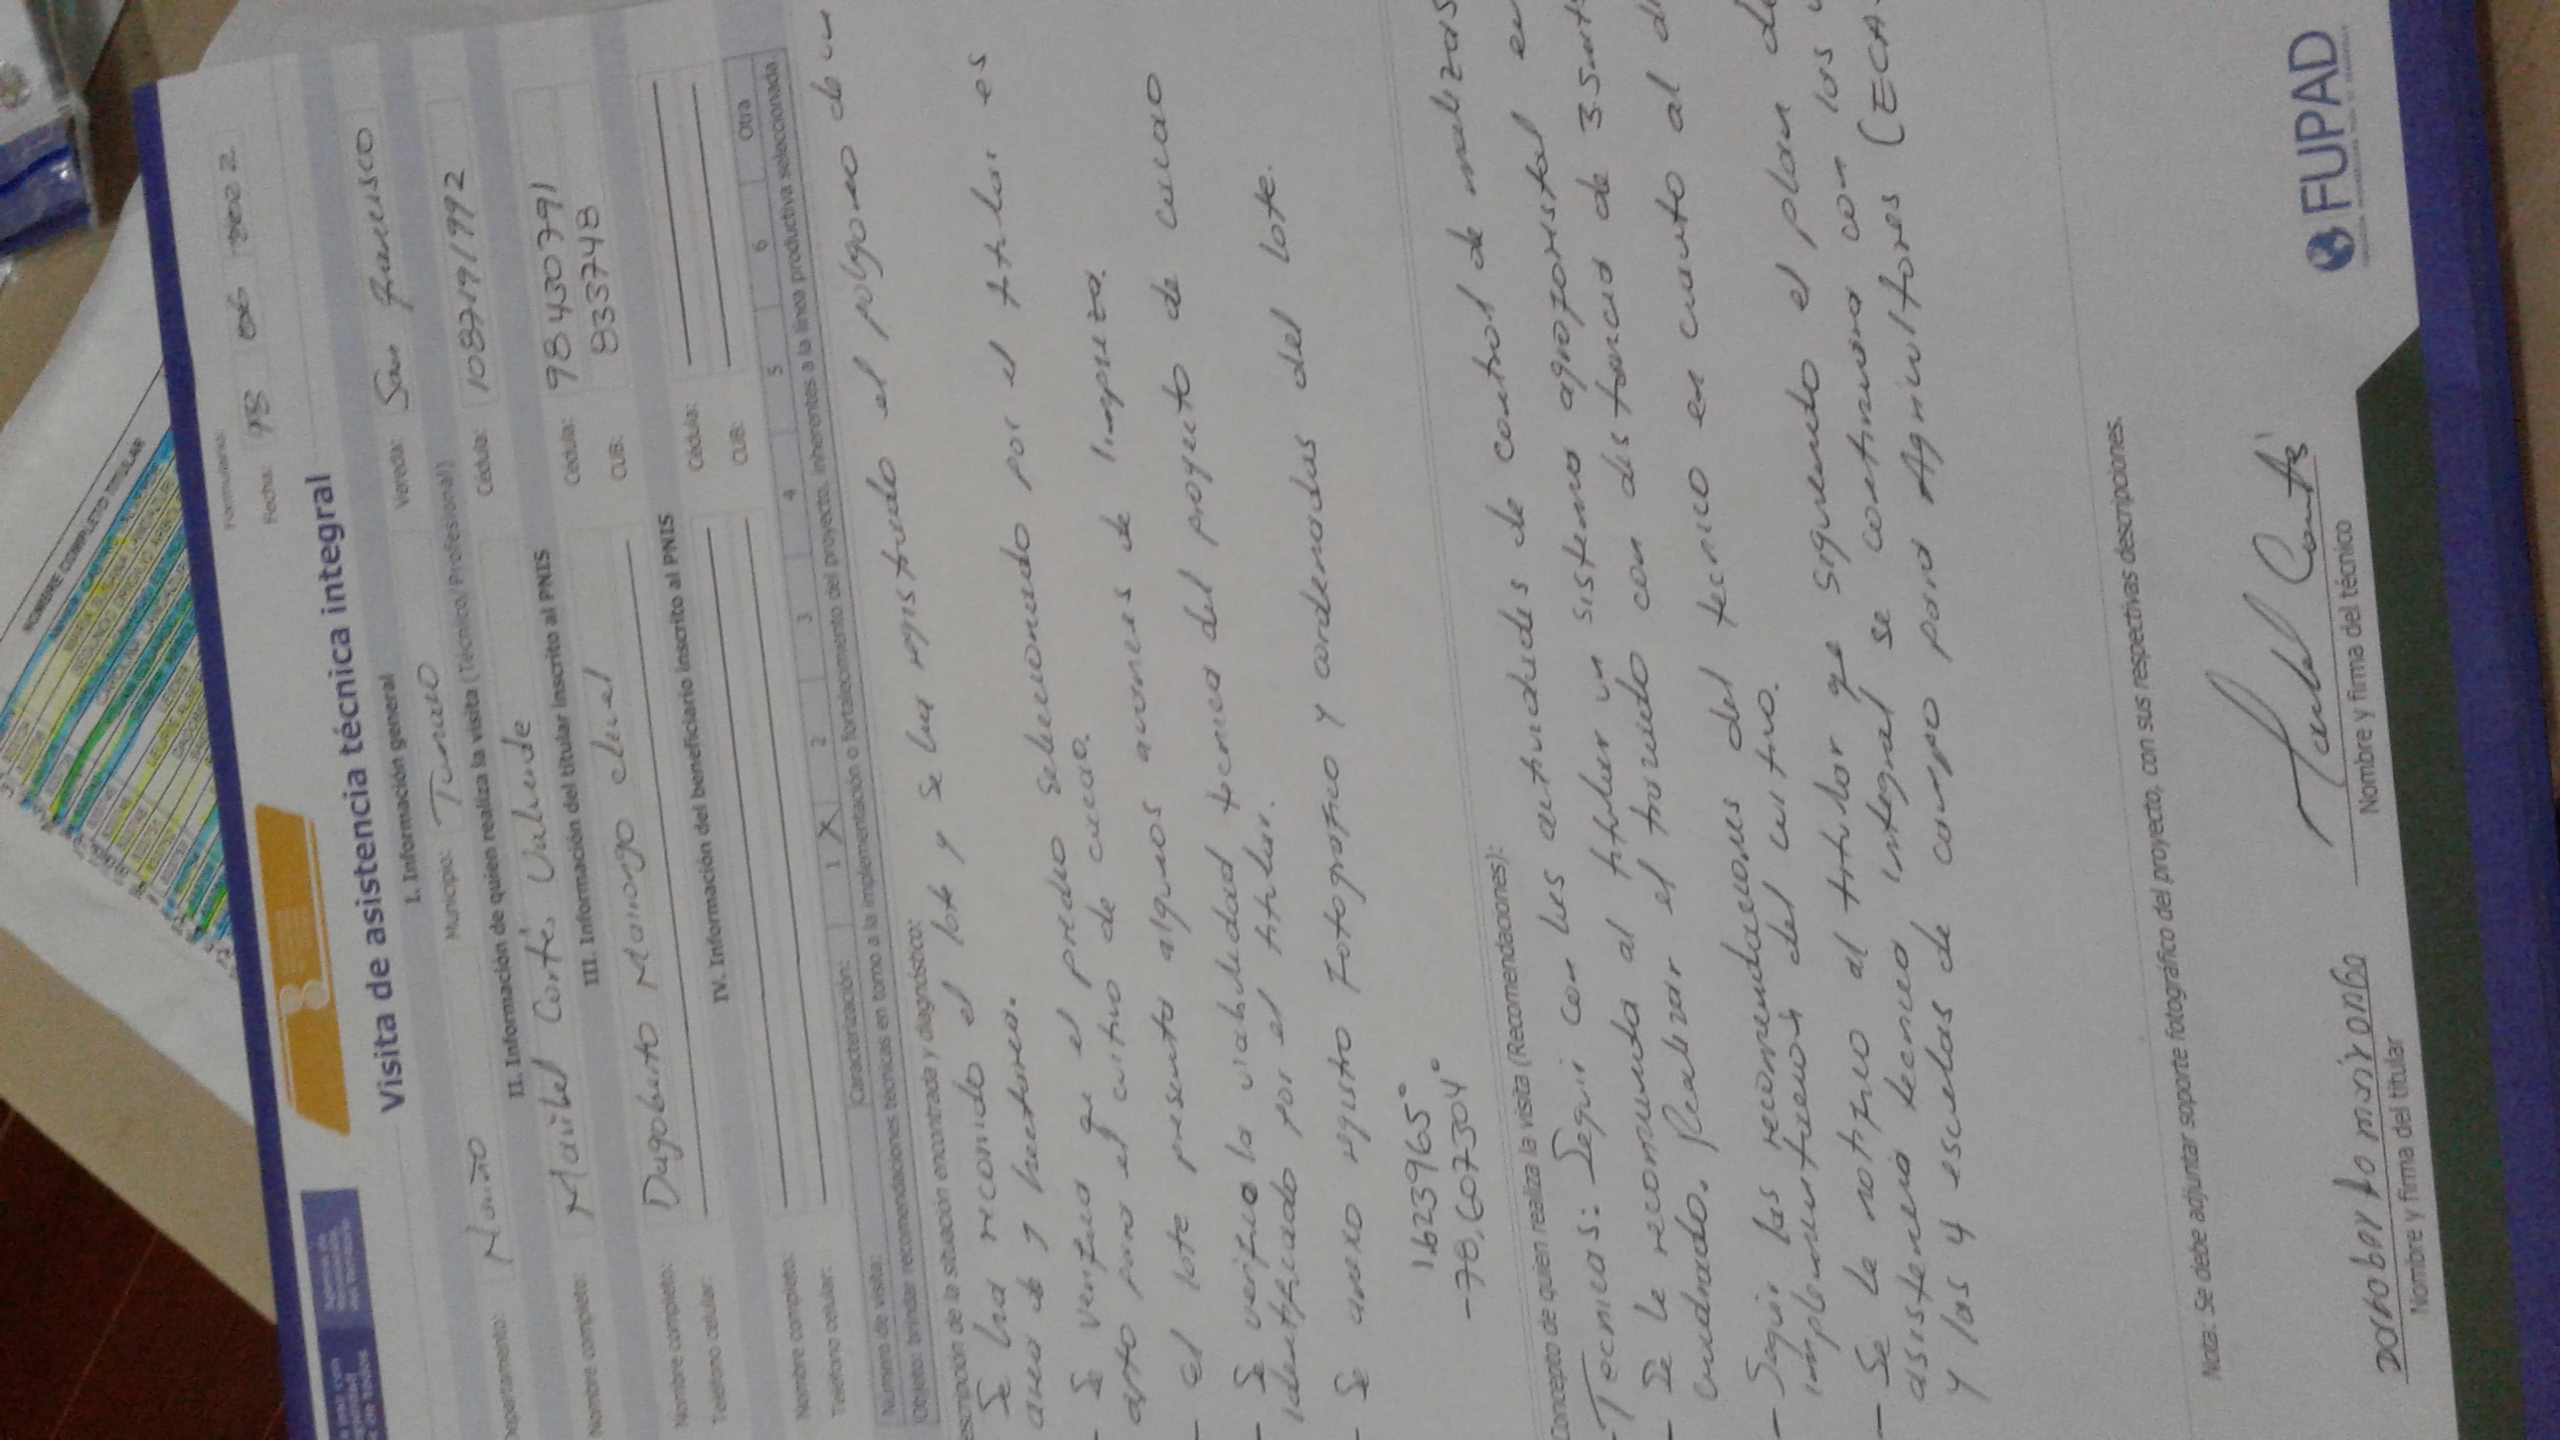 NOMBRE COMPLETO TITULAR
Formulario:
Fecha: 18 06 2022
Visita de asistencia técnica integral
I. Información general
Departamento: Nariño Municipio: Tumaco Vereda: San Francisco
II. Información de quien realiza la visita (Técnico/Profesional)
Nombre completo: Maribel Cortés Valverde Cédula: 1087191992
III. Información del titular inscrito al PNIS
Nombre completo: Dagoberto Mairongo cluvel Cédula: 98430791
Teléfono celular: CUB: 8333748
IV. Información del beneficiario inscrito al PNIS
Nombre completo: Cédula:
Teléfono celular: CUB:
Número de visita: Caracterización: 1 X 2 3 4 5 6 Otra
Objeto: brindar recomendaciones técnicas en torno a la implementación o fortalecimiento del proyecto, inherentes a la línea productiva seleccionada.
escripción de la situación encontrada y diagnóstico:
Se ha recorrido el lote y se ha registrado el polígono de un
area de 1 hectarea.
- Se verifica que el predio seleccionado por el titular es
apto para el cultivo de cacao.
- El lote presenta algunos avances de limpieza.
- Se verifico la viabilidad tecnica del proyecto de cacao
identificado por el titular.
- Se anexo registro Fotografico y cordenadas del lote.
1.623965°
-78,607304°
Concepto de quien realiza la visita (Recomendaciones):
- Tecnicas: Seguir con las actividades de control de malezas
- Se le recomienda al titular un sistema agroforestal en
cuadrado. Realizar el trazado con distancia de 3.5
- Seguir las recomendaciones del tecnico en cuanto al
implementacion del cultivo.
- Se le notifico al titular que siguiendo el plan de
assistencia tecnica integral se continuara con las
y las 4 escuelas de campo para Agricultores (ECA
Nota: Se debe adjuntar soporte fotográfico del proyecto, con sus respectivas descripciones.
Dagoberto mairongo
Nombre y firma del titular
Maribel Cortés
Nombre y firma del técnico
FUPAD